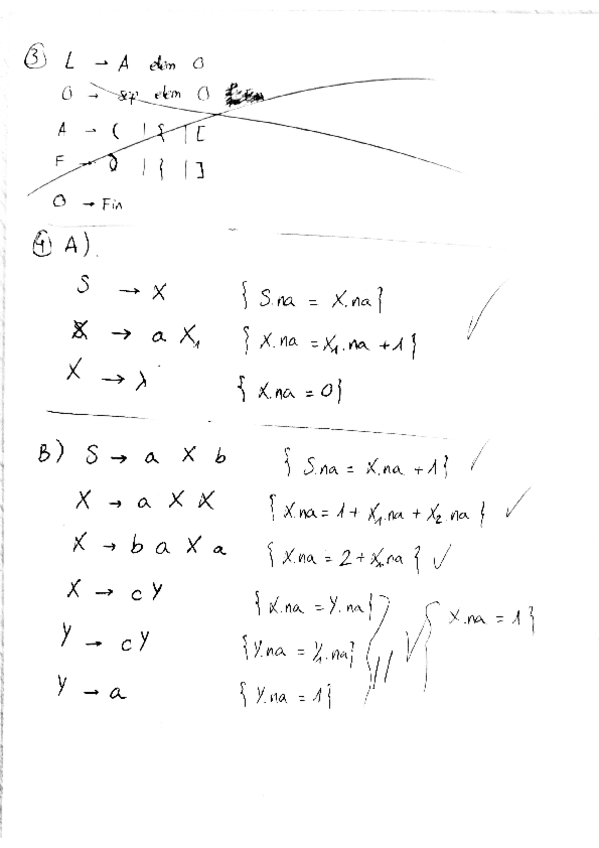 ③ L → A elem O
O → sep elem O
A → ( | { | [
F → ) | } | ]
O → Fin
④ A).
S → X { S.na = X.na }
X → a X₁ { X.na = X₁.na + 1 }
X → λ { X.na = 0 }
B) S → a X b { S.na = X.na + 1 }
X → a X X { X.na = 1 + X₁.na + X₂.na }
X → b a X a { X.na = 2 + X₁.na }
X → c Y { X.na = Y.na } { X.na = 1 }
Y → c Y { Y.na = Y₁.na }
Y → a { Y.na = 1 }